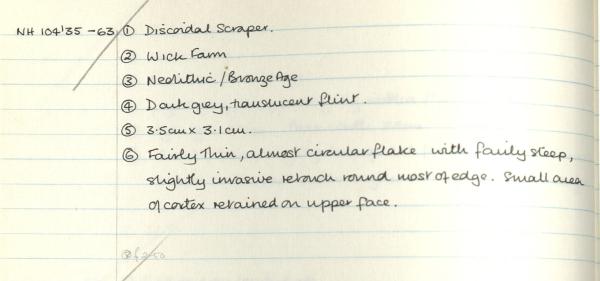 NH 104'35 - 63 ① Discoidal Scraper.
② Wick Farm
③ Neolithic / Bronze Age
④ Dark grey, translucent flint.
⑤ 3.5cm x 3.1cm.
⑥ Fairly thin, almost circular flake with fairly steep,
slightly invasive retouch round most of edge. Small area
of cortex retained on upper face.